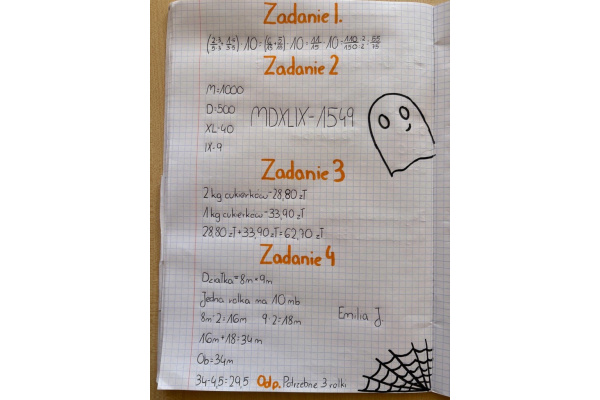 Zadanie 1.
(2·3/5·3 + 1·5/3·5) · 10 = (6/15 + 5/15) · 10 = 11/15 · 10 = 110/150 : 2 = 55/75
Zadanie 2
M=1000
D=500
MDXLIX-1549
XL-40
IX-9
Zadanie 3
2 kg cukierków-28,80 zł
1 kg cukierków-33,90 zł
28,80 zł+33,90 zł=62,70 zł
Zadanie 4
Działka=8m×9m
Jedna rolka ma 10 mb
8m·2=16m 9·2=18m
Emilia J.
16m+18=34m
Ob=34m
34-4,5=29,5 Odp. Potrzebne 3 rolki